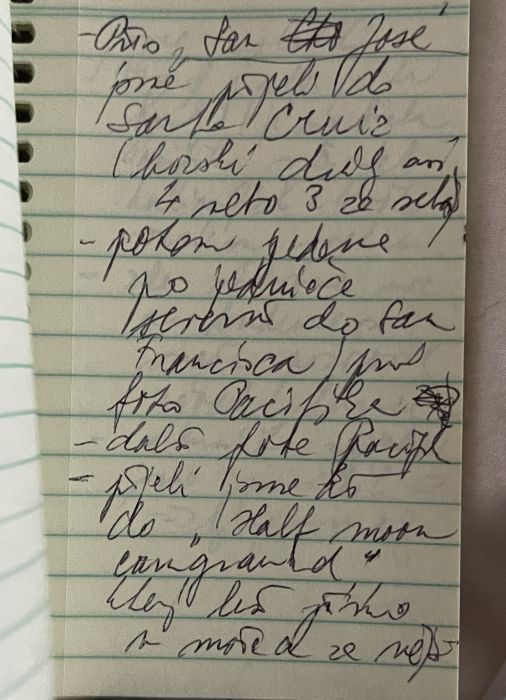 - Přes San José
jsme přijeli do
Santa Cruiz
(horský
4 nebo 3 ze sebou)
- potom jedeme
po jedničce
severně do San
Francisca, prvé
foto Pacifiku
- další fote Pacifik
- přijeli jsme
do "Half moon
campground"
který leží přímo
u moře a ze